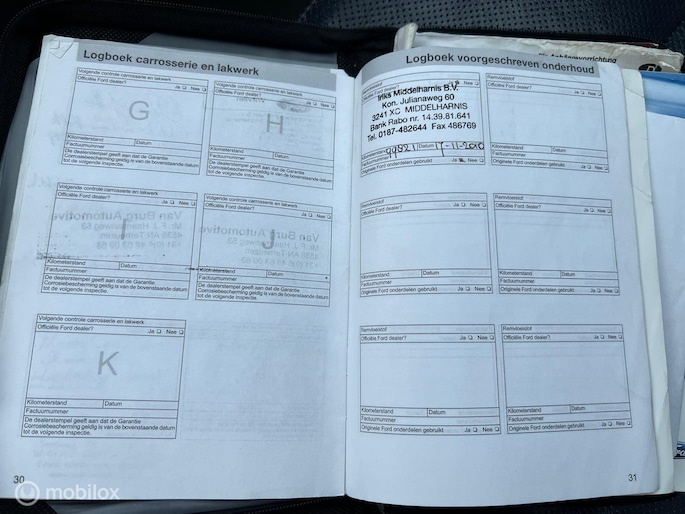 Logboek carrosserie en lakwerk
Volgende controle carrosserie en lakwerk
Officiële Ford dealer? Ja Nee
G
Kilometerstand Datum
Factuurnummer
De dealerstempel geeft aan dat de Garantie
Corrosiebescherming geldig is van de bovenstaande datum
tot de volgende inspectie.
Volgende controle carrosserie en lakwerk
Officiële Ford dealer? Ja Nee
H
Kilometerstand Datum
Factuurnummer
De dealerstempel geeft aan dat de Garantie
Corrosiebescherming geldig is van de bovenstaande datum
tot de volgende inspectie.
Volgende controle carrosserie en lakwerk
Officiële Ford dealer? Ja Nee
I
Kilometerstand Datum
Factuurnummer
De dealerstempel geeft aan dat de Garantie
Corrosiebescherming geldig is van de bovenstaande datum
tot de volgende inspectie.
Volgende controle carrosserie en lakwerk
Officiële Ford dealer? Ja Nee
J
Van Burg Automotive
Kilometerstand Datum
Factuurnummer
De dealerstempel geeft aan dat de Garantie
Corrosiebescherming geldig is van de bovenstaande datum
tot de volgende inspectie.
Volgende controle carrosserie en lakwerk
Officiële Ford dealer? Ja Nee
K
Kilometerstand Datum
Factuurnummer
De dealerstempel geeft aan dat de Garantie
Corrosiebescherming geldig is van de bovenstaande datum
tot de volgende inspectie.
30
Logboek voorgeschreven onderhoud
Officiële Ford dealer? Ja Nee
Iriks Middelharnis B.V.
Kon. Julianaweg 60
3241 XC MIDDELHARNIS
Bank Rabo nr. 14.39.81.641
Tel. 0187-482644 Fax 486769
Kilometerstand Datum 17-11-2010
Factuurnummer
Originele Ford onderdelen gebruikt Ja Nee
Remvloeistof
Officiële Ford dealer? Ja Nee
Kilometerstand Datum
Factuurnummer
Originele Ford onderdelen gebruikt Ja Nee
Remvloeistof
Officiële Ford dealer? Ja Nee
Kilometerstand Datum
Factuurnummer
Originele Ford onderdelen gebruikt Ja Nee
Remvloeistof
Officiële Ford dealer? Ja Nee
Kilometerstand Datum
Factuurnummer
Originele Ford onderdelen gebruikt Ja Nee
Remvloeistof
Officiële Ford dealer? Ja Nee
Kilometerstand Datum
Factuurnummer
Originele Ford onderdelen gebruikt Ja Nee
Remvloeistof
Officiële Ford dealer? Ja Nee
Kilometerstand Datum
Factuurnummer
Originele Ford onderdelen gebruikt Ja Nee
31
mobilox